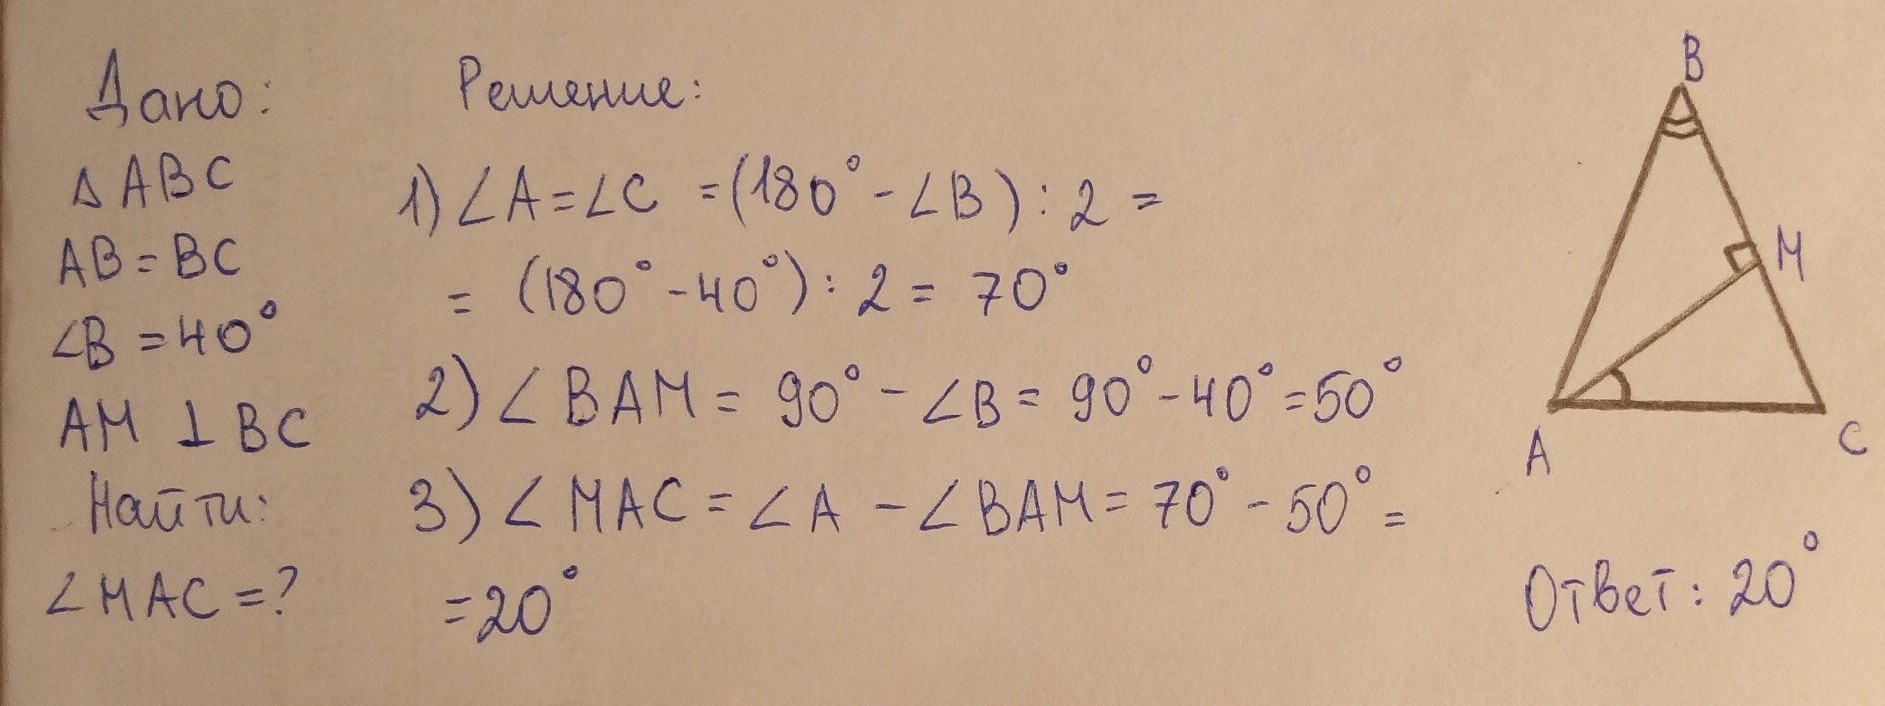 Дано:
△ABC
AB = BC
∠B = 40°
AM ⊥ BC
Найти:
∠MAC = ?
Решение:
1) ∠A = ∠C = (180° - ∠B) : 2 =
= (180° - 40°) : 2 = 70°
2) ∠BAM = 90° - ∠B = 90° - 40° = 50°
3) ∠MAC = ∠A - ∠BAM = 70° - 50° =
= 20°
B
M
A
C
Ответ: 20°